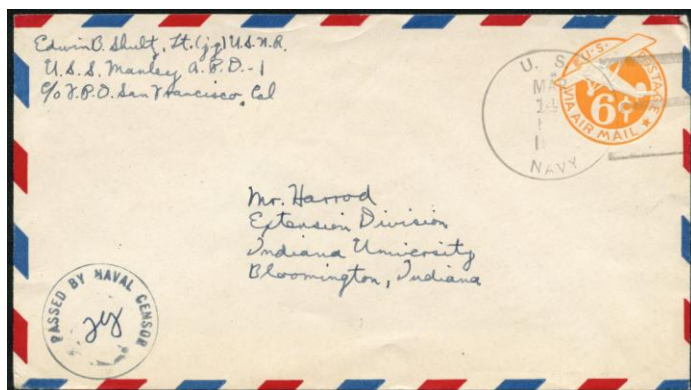 Edwin B. Shultz, Lt. (jg) U.S.N.R.
U.S.S. Manley A.P.D.-1
c/o F.P.O. San Francisco, Cal
U.S.
NAVY
U.S. POSTAGE
6¢
VIA AIR MAIL
Mr. Harrod
Extension Division
Indiana University
Bloomington, Indiana
PASSED BY NAVAL CENSOR